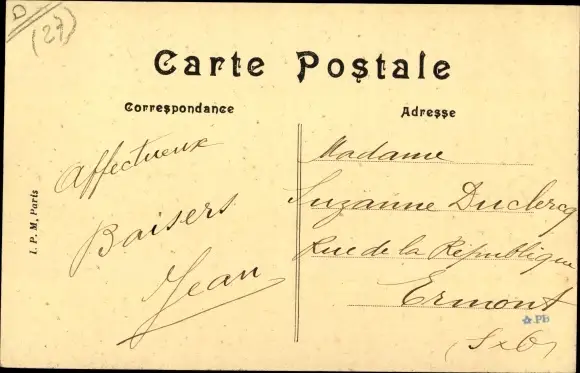 D
(27)
Carte Postale
Correspondance
Adresse
Affectueux
Baisers
Jean
Madame
Suzanne Duclercq
Rue de la République
Ermont
(S x O)
I. P. M. Paris
☆.Pb